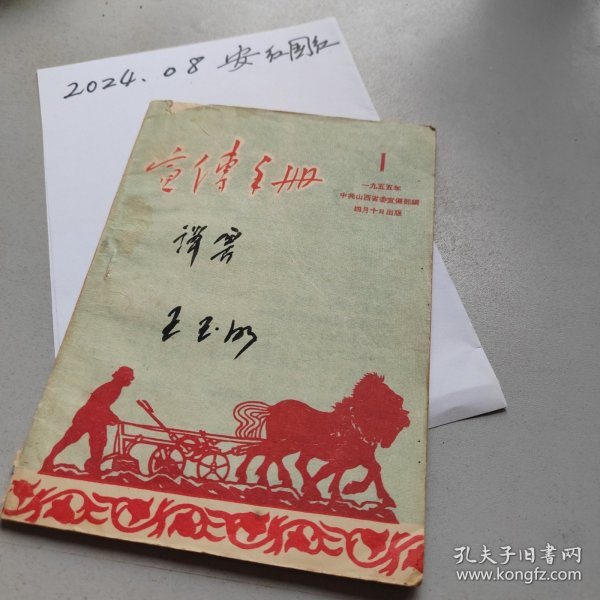 2024.08 安红图红
宣傳手册
1
一九五五年
中共山西省委宣傳部編
四月十日出版
王玉明
孔夫子旧书网
www.kongfz.com